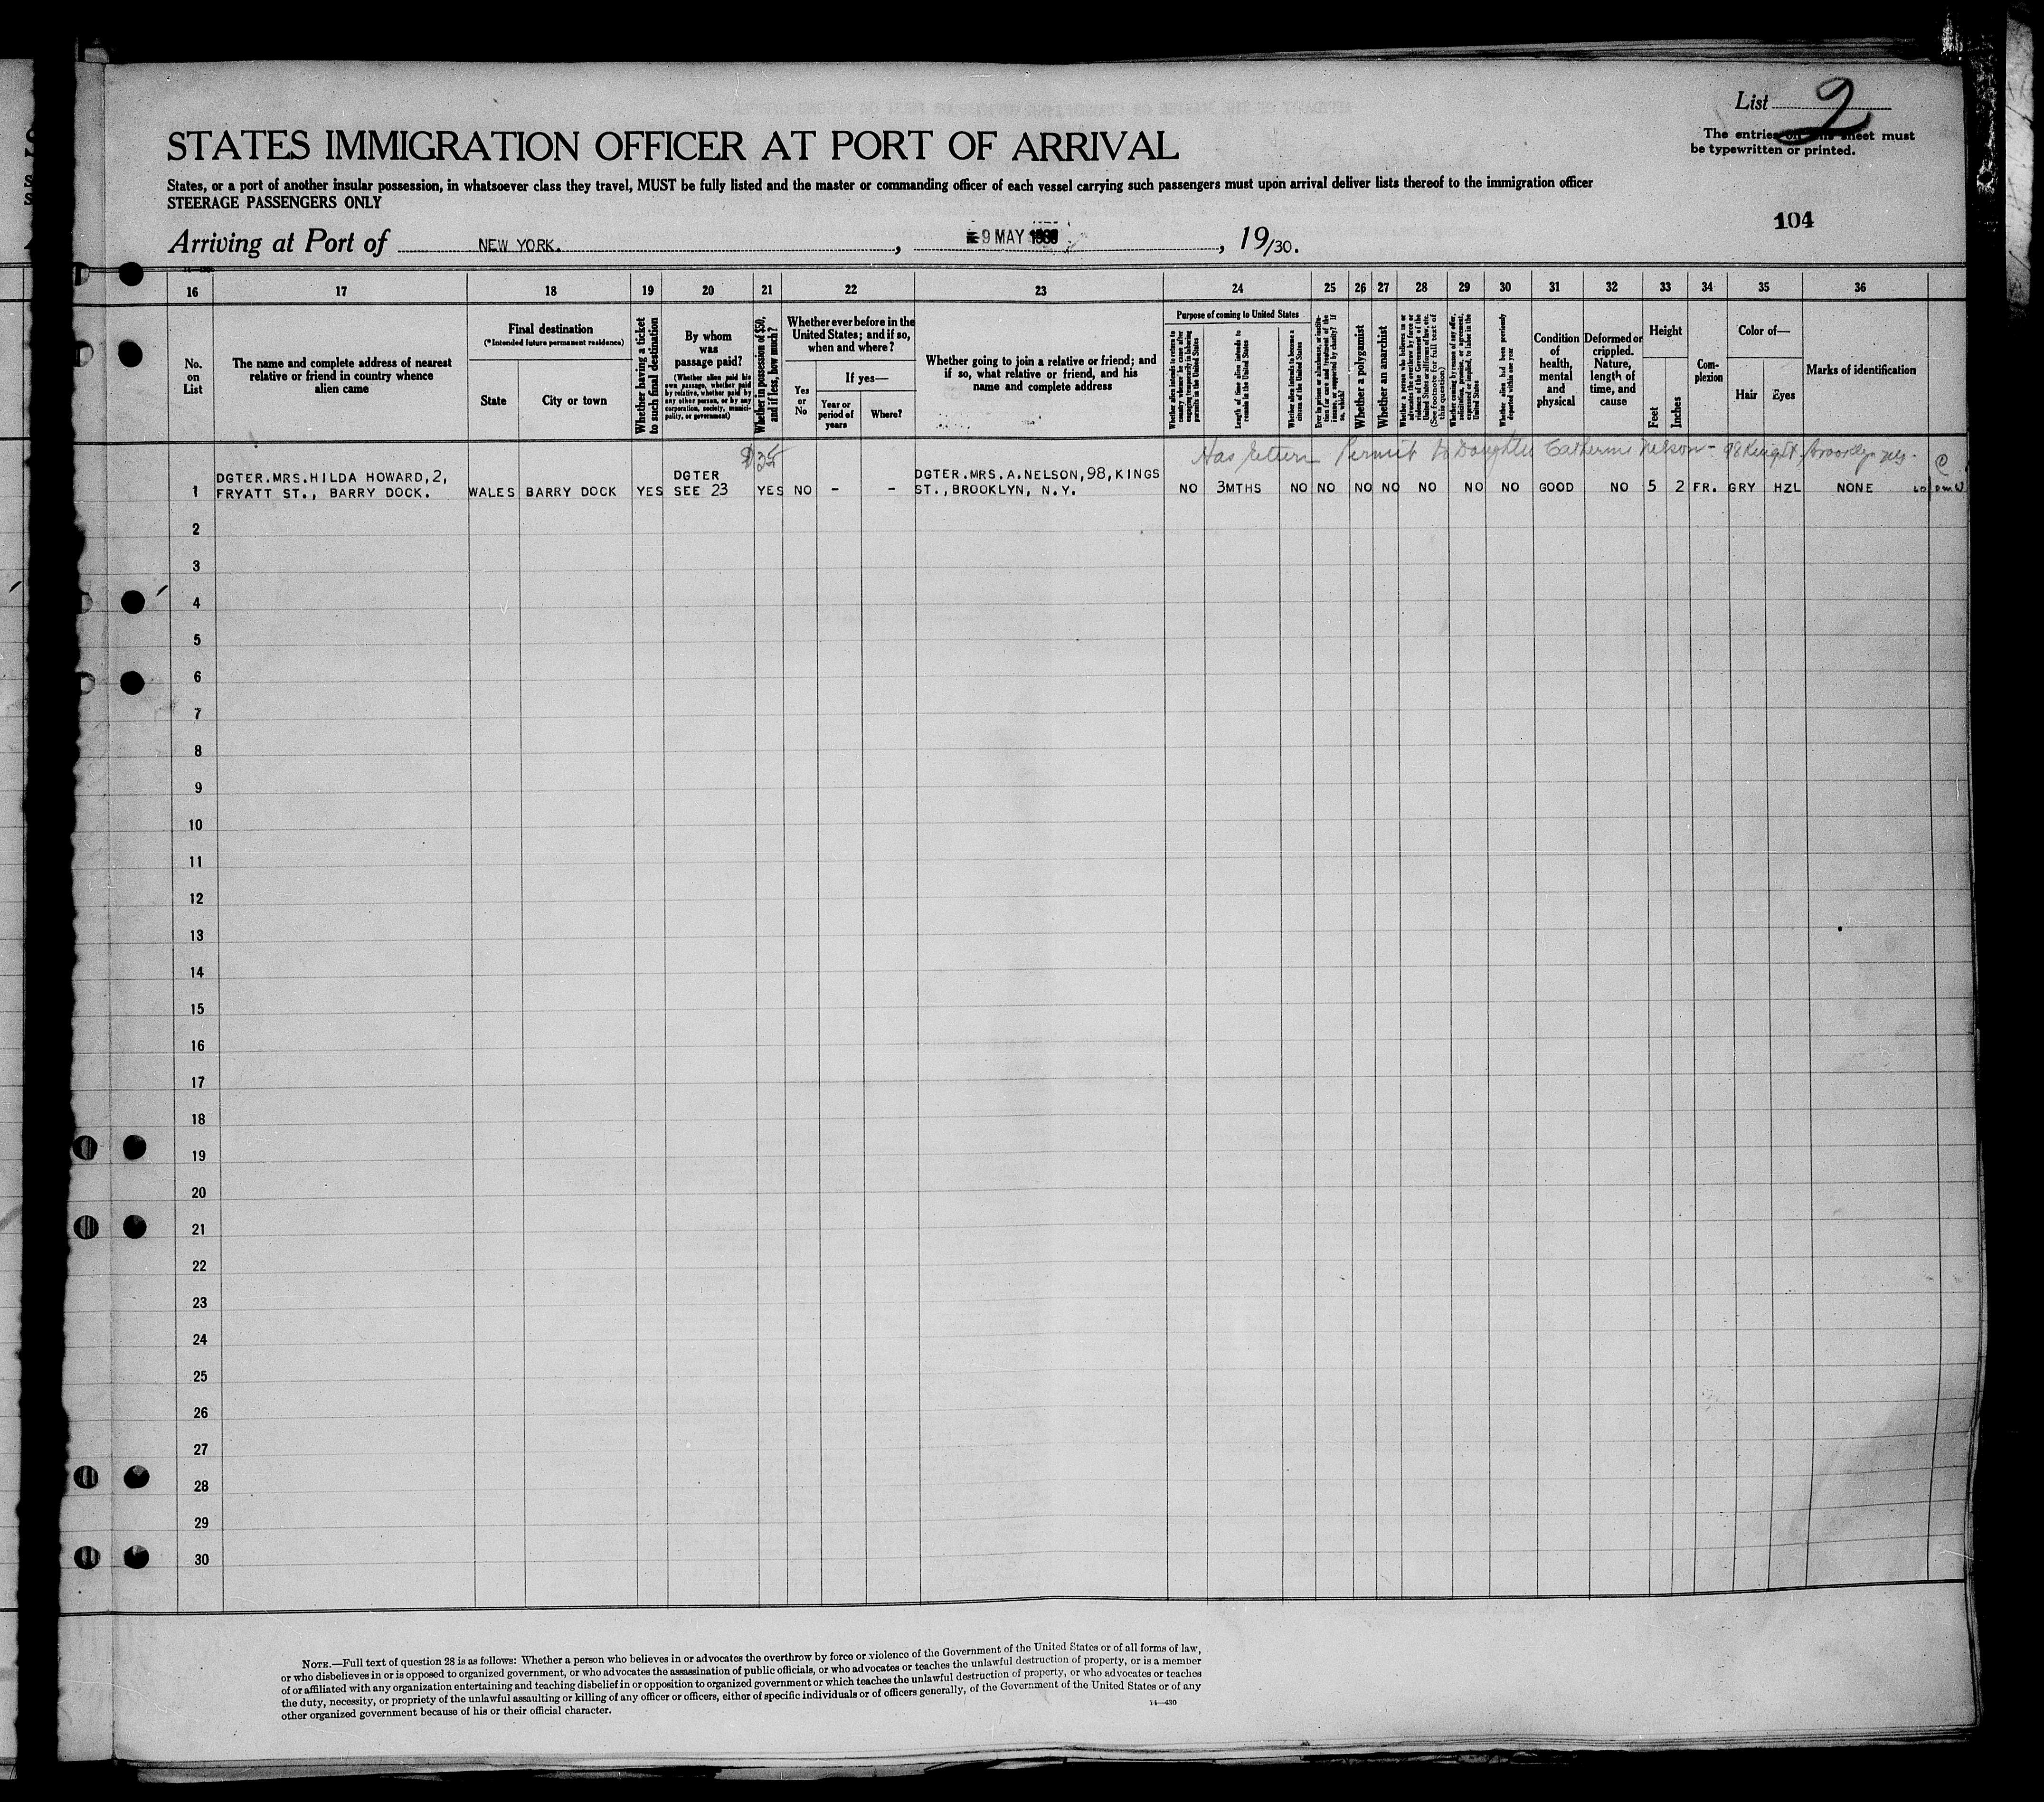 List 2
The entries on this sheet must
be typewritten or printed.
STATES IMMIGRATION OFFICER AT PORT OF ARRIVAL
States, or a port of another insular possession, in whatsoever class they travel, MUST be fully listed and the master or commanding officer of each vessel carrying such passengers must upon arrival deliver lists thereof to the immigration officer
STEERAGE PASSENGERS ONLY
104
Arriving at Port of NEW YORK. , 9 MAY 1930 , 19/30.
16 17 18 19 20 21 22 23 24 25 26 27 28 29 30 31 32 33 34 35 36
No.
on
List
The name and complete address of nearest
relative or friend in country whence
alien came
Final destination
(*Intended future permanent residence)
State
City or town
Whether having a ticket
to such final destination
By whom
was
passage paid?
(Whether alien paid his
own passage, whether paid
by relative, whether paid by
any other person, or by any
corporation, society, munici-
pality, or government)
Whether in possession of $50,
and if less, how much?
Whether ever before in the
United States; and if so,
when and where?
Yes
or
No
If yes—
Year or
period of
years
Where?
Whether going to join a relative or friend; and
if so, what relative or friend, and his
name and complete address
Purpose of coming to United States
Whether alien intends to return to
country whence he came after
engaging temporarily in laboring
pursuits in the United States
Length of time alien intends to
remain in the United States
Whether alien intends to become a
citizen of the United States
Ever in prison or almshouse, or institu-
tion for care and treatment of the
insane, or supported by charity? If
so, which?
Whether a polygamist
Whether an anarchist
Whether a person who believes in or
advocates the overthrow by force or
violence of the Government of the
United States or all forms of law, etc.
(See footnote for full text of
this question)
Whether coming by reason of any offer,
solicitation, promise, or agreement,
expressed or implied, to labor in the
United States
Whether alien had been previously
deported within one year
Condition
of
health,
mental
and
physical
Deformed or
crippled.
Nature,
length of
time, and
cause
Height
Feet
Inches
Com-
plexion
Color of—
Hair
Eyes
Marks of identification
Has return Permit to Daughter Catherine Nelson - 98 King St Brooklyn NY.
DGTER.MRS.HILDA HOWARD,2, DGTER DGTER.MRS.A.NELSON,98,KINGS
1 FRYATT ST., BARRY DOCK. WALES BARRY DOCK YES SEE 23 YES NO - - ST.,BROOKLYN, N.Y. NO 3MTHS NO NO NO NO NO NO NO GOOD NO 5 2 FR. GRY HZL NONE
2
3
4
5
6
7
8
9
10
11
12
13
14
15
16
17
18
19
20
21
22
23
24
25
26
27
28
29
30
NOTE.—Full text of question 28 is as follows: Whether a person who believes in or advocates the overthrow by force or violence of the Government of the United States or of all forms of law,
or who disbelieves in or is opposed to organized government, or who advocates the assassination of public officials, or who advocates or teaches the unlawful destruction of property, or is a member
of or affiliated with any organization entertaining and teaching disbelief in or opposition to organized government or which teaches the unlawful destruction of property, or who advocates or teaches
the duty, necessity, or propriety of the unlawful assaulting or killing of any officer or officers, either of specific individuals or of officers generally, of the Government of the United States or of any
other organized government because of his or their official character.
14—430